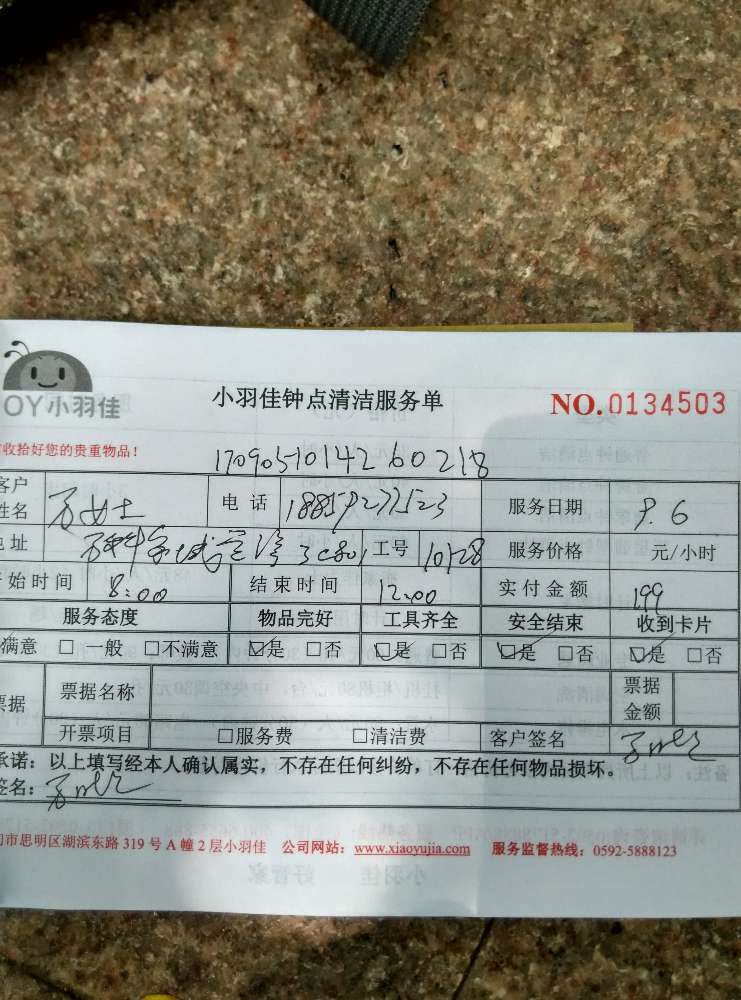 OY小羽佳
小羽佳钟点清洁服务单
NO.0134503
收拾好您的贵重物品！
170905101426 0218
客户姓名 女士 电话 服务日期 9.6
址 3c801 工号 1028 服务价格 元/小时
始时间 8:00 结束时间 12:00 实付金额 199
服务态度 物品完好 工具齐全 安全结束 收到卡片
满意 □一般 □不满意 ☑是 □否 ☑是 □否 ☑是 □否 ☑是 □否
票据 票据名称 票据金额
开票项目 □服务费 □清洁费 客户签名
承诺：以上填写经本人确认属实，不存在任何纠纷，不存在任何物品损坏。
签名：
市思明区湖滨东路 319 号 A 幢 2 层小羽佳 公司网站：www.xiaoyujia.com 服务监督热线：0592-5888123